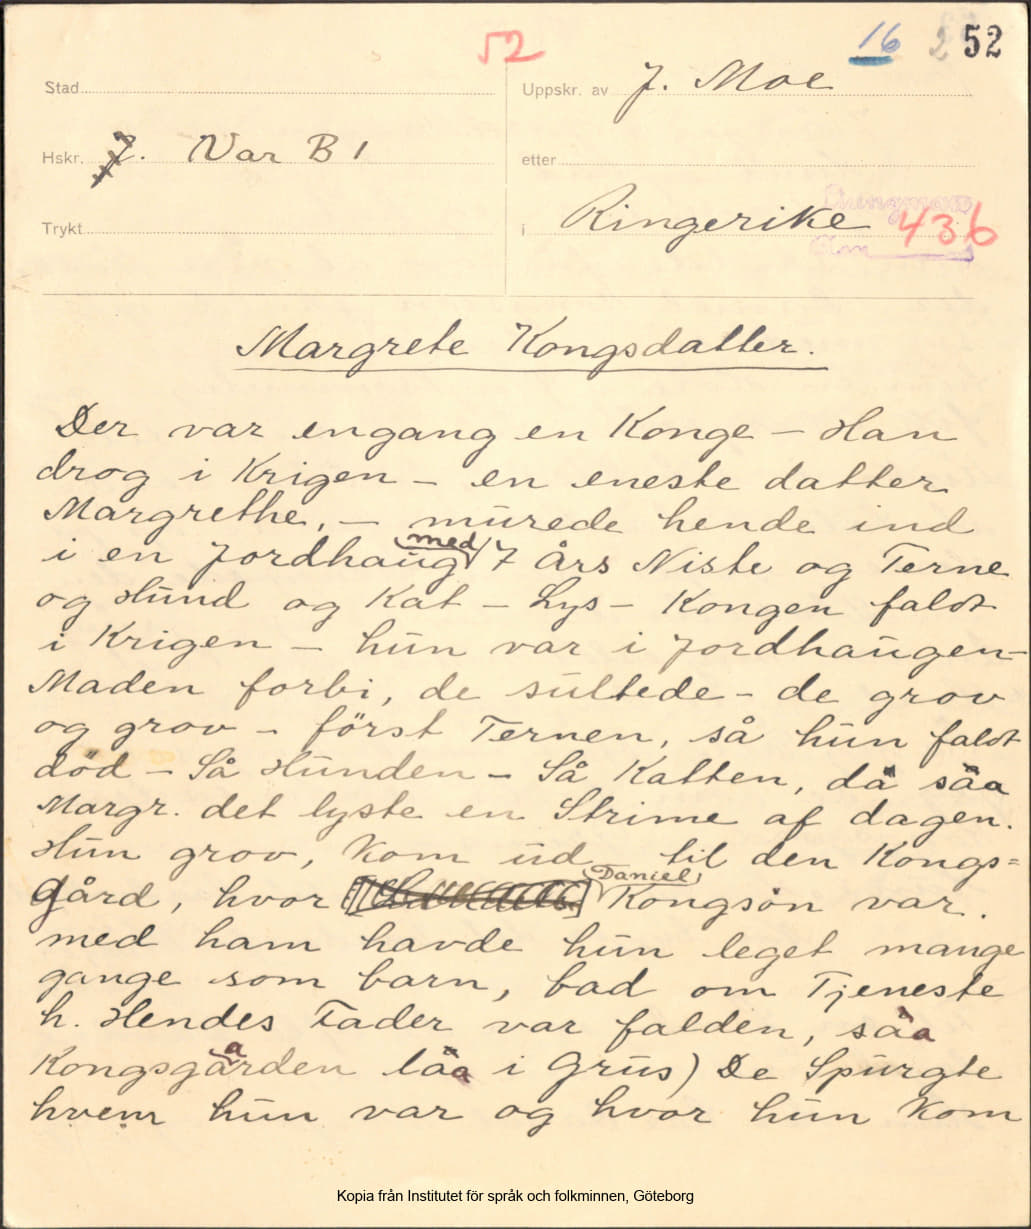 52 16 2 52
Stad Uppskr. av J. Moe
Hskr. Var B 1 etter
Trykt i Ringerike 436
Margrete Kongsdatter.
Der var engang en Konge – Han
drog i Krigen – en eneste datter
Margrethe, – murede hende ind
i en Jordhaug med 7 års Niste og Terne
og Hund og Kat – Lys – Kongen faldt
i Krigen – hun var i Jordhaugen –
Maden forbi, de sultede – de grov
og grov – först Ternen, så hun faldt
död – Så Hunden – Så Katten, da såa
Margr. det lyste en Strime af dagen.
Hun grov, kom ud til den Kongs=
gård, hvor Daniel Kongsön var.
med ham havde hun leget mange
gange som barn, bad om Tjeneste
h. Hendes Fader var falden, såa
Kongsgaarden låa i Grus) De Spurgte
hvem hun var og hvor hun kom
Kopia från Institutet för språk och folkminnen, Göteborg